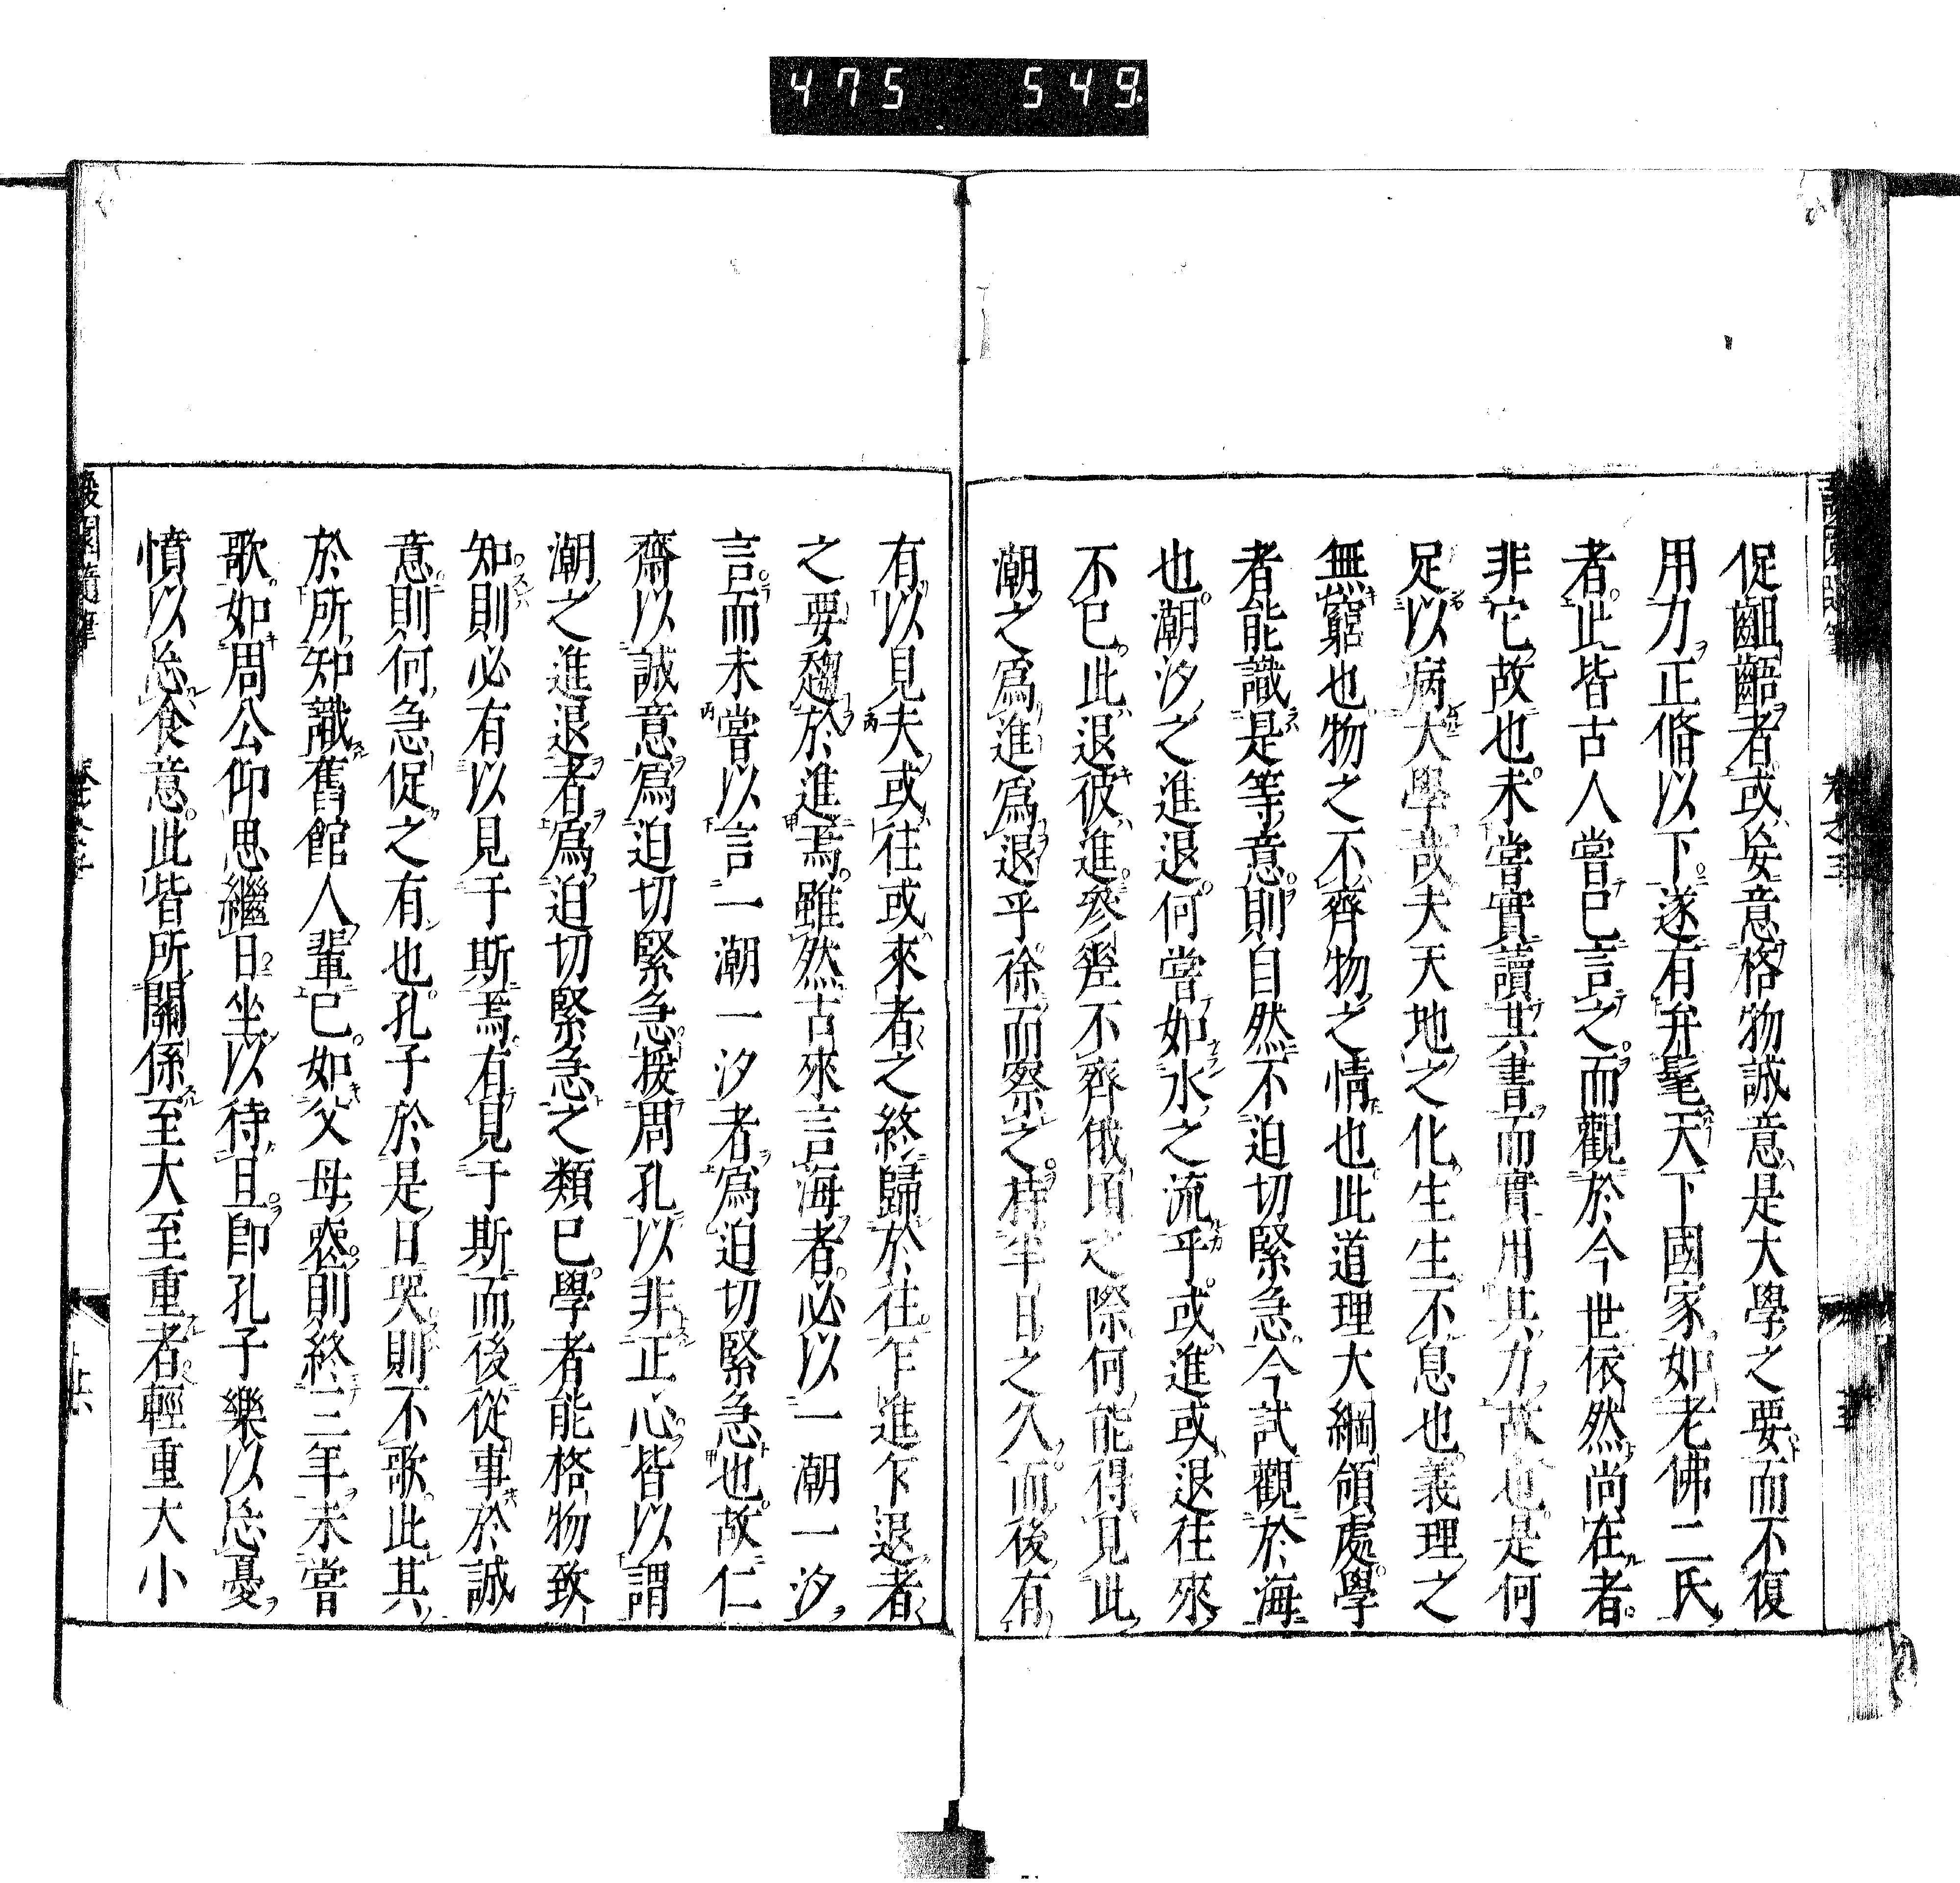 475 549
促齟齬者或妄意格物誠意是大學之要而不復
用力正脩以下遂有弁髦天下國家如老佛二氏
者此皆古人嘗已言之而觀於今世依然尚在者
非它故也未嘗實讀其書而實用其力故也是何
足以病大學哉夫天地之化生生不息也義理之
無窮也物之不齊物之情也此道理大綱領處學
者能識是等意則自然不迫切緊急今試觀於海
也潮汐之進退何嘗如水之流乎或進或退往來
不已此退彼進參差不齊俄頃之際何能得見此
潮之爲進爲退乎徐而察之待半日之久而後有
有以見夫或往或來者之終歸於往乍進乍退者
之要趨於進焉雖然古來言海者必以一潮一汐
言而未嘗以言一潮一汐者爲迫切緊急也故仁
齋以誠意爲迫切緊急援周孔以非正心皆以謂
潮之進退者爲迫切緊急之類已學者能格物致
知則必有以見于斯焉有見于斯而後從事於誠
意則何急促之有也孔子於是日哭則不歌此其
於所知識舊館人輩已如父母喪則終三年未嘗
歌如周公仰思繼日坐以待旦即孔子樂以忘憂
憤以忘食意此皆所關係至大至重者輕重大小